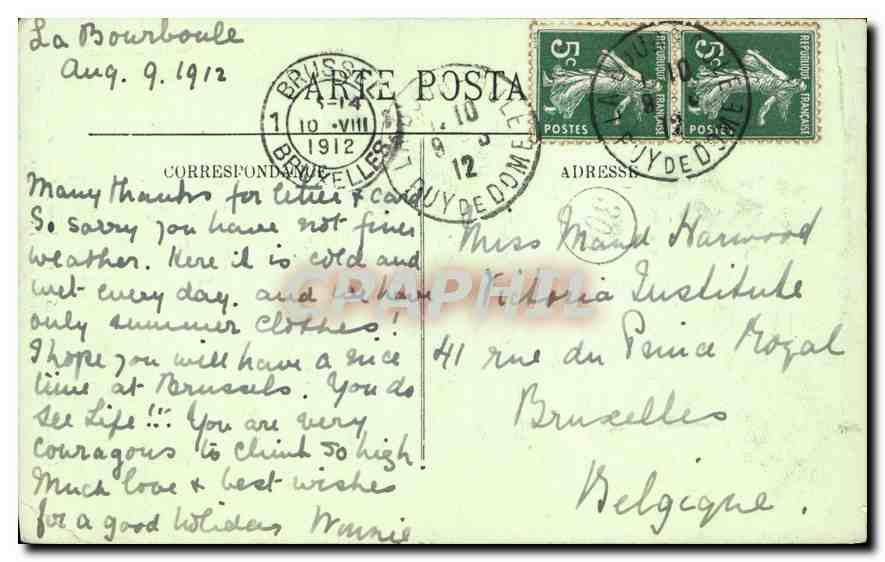 La Bourboule
Aug. 9. 1912
CARTE POSTA
BRUSSEL
5-14
1 10 VIII
1912
BRUXELLES
10
9 8
12
PUY DE DOME
5c
POSTES
REPUBLIQUE FRANÇAISE
5c
POSTES
REPUBLIQUE FRANÇAISE
LA BOURBOULE
10
PUY DE DOME
CORRESPONDANCE
ADRESSE
Many thanks for letter & card
So sorry you have not finer
weather. Here it is cold and
wet every day. and we have
only summer clothes!
I hope you will have a nice
time at Brussels. You do
see Life!!! You are very
couragous to climb so high
Much love & best wishes
for a good holiday Winnie
30
Miss Maud Harwood
Victoria Institute
41 rue du Prince Royal
Bruxelles
Belgique.
CPAPHIL